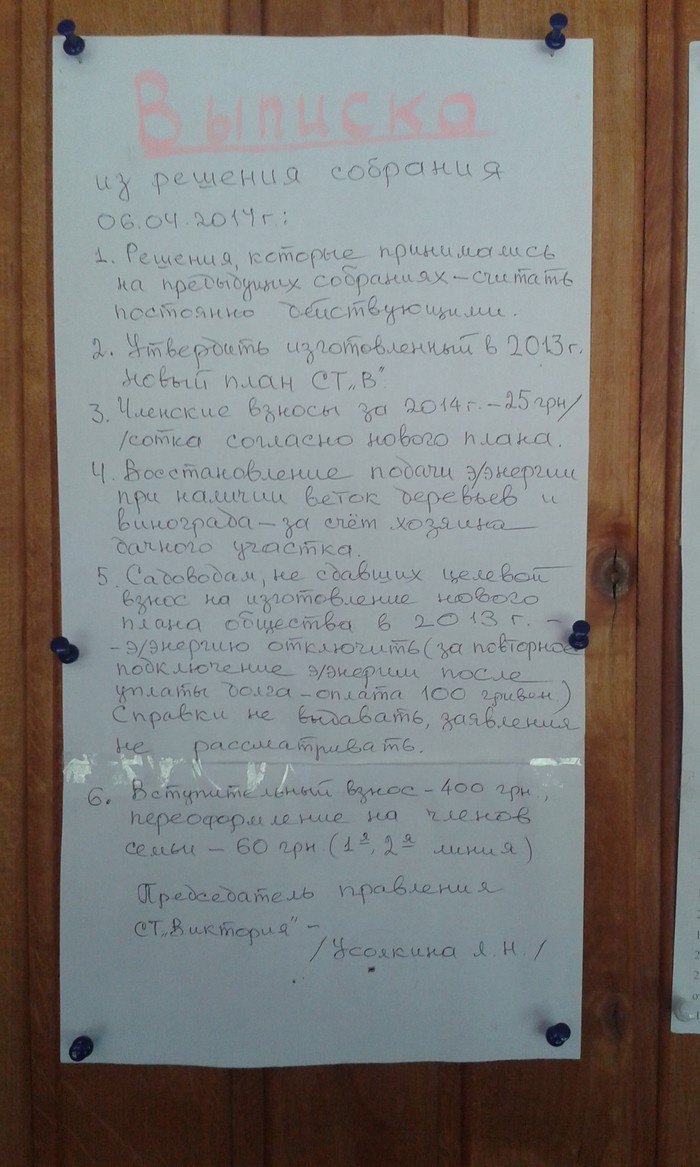 Выписка
из решения собрания
06.04.2014г.:
1. Решения, которые принимались
на предыдущих собраниях – считать
постоянно действующими.
2. Утвердить изготовленный в 2013 г.
новый план СТ „В".
3. Членские взносы за 2014г. – 25 грн/
/сотка согласно нового плана.
4. Восстановление подачи э/энергии
при наличии веток деревьев и
винограда – за счёт хозяина
дачного участка.
5. Садоводам, не сдавших целевой
взнос на изготовление нового
плана общества в 2013 г. –
- э/энергию отключить (за повторное
подключение э/энергии после
уплаты долга – оплата 100 гривен)
Справки не выдавать, заявления
не рассматривать.
6. Вступительный взнос – 400 грн.,
переоформление на членов
семьи – 60 грн (1я, 2я линия)
Председатель правления
СТ „Виктория" –
/Усоякина Я.Н./